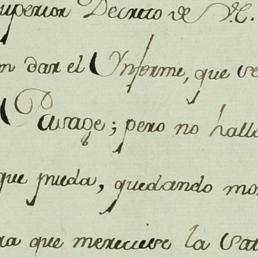 uperior Decreto de V.E.
n dar el Ynforme, que se
Parage; pero no halla
que pueda, quedando mo
ra que mereciere la sat